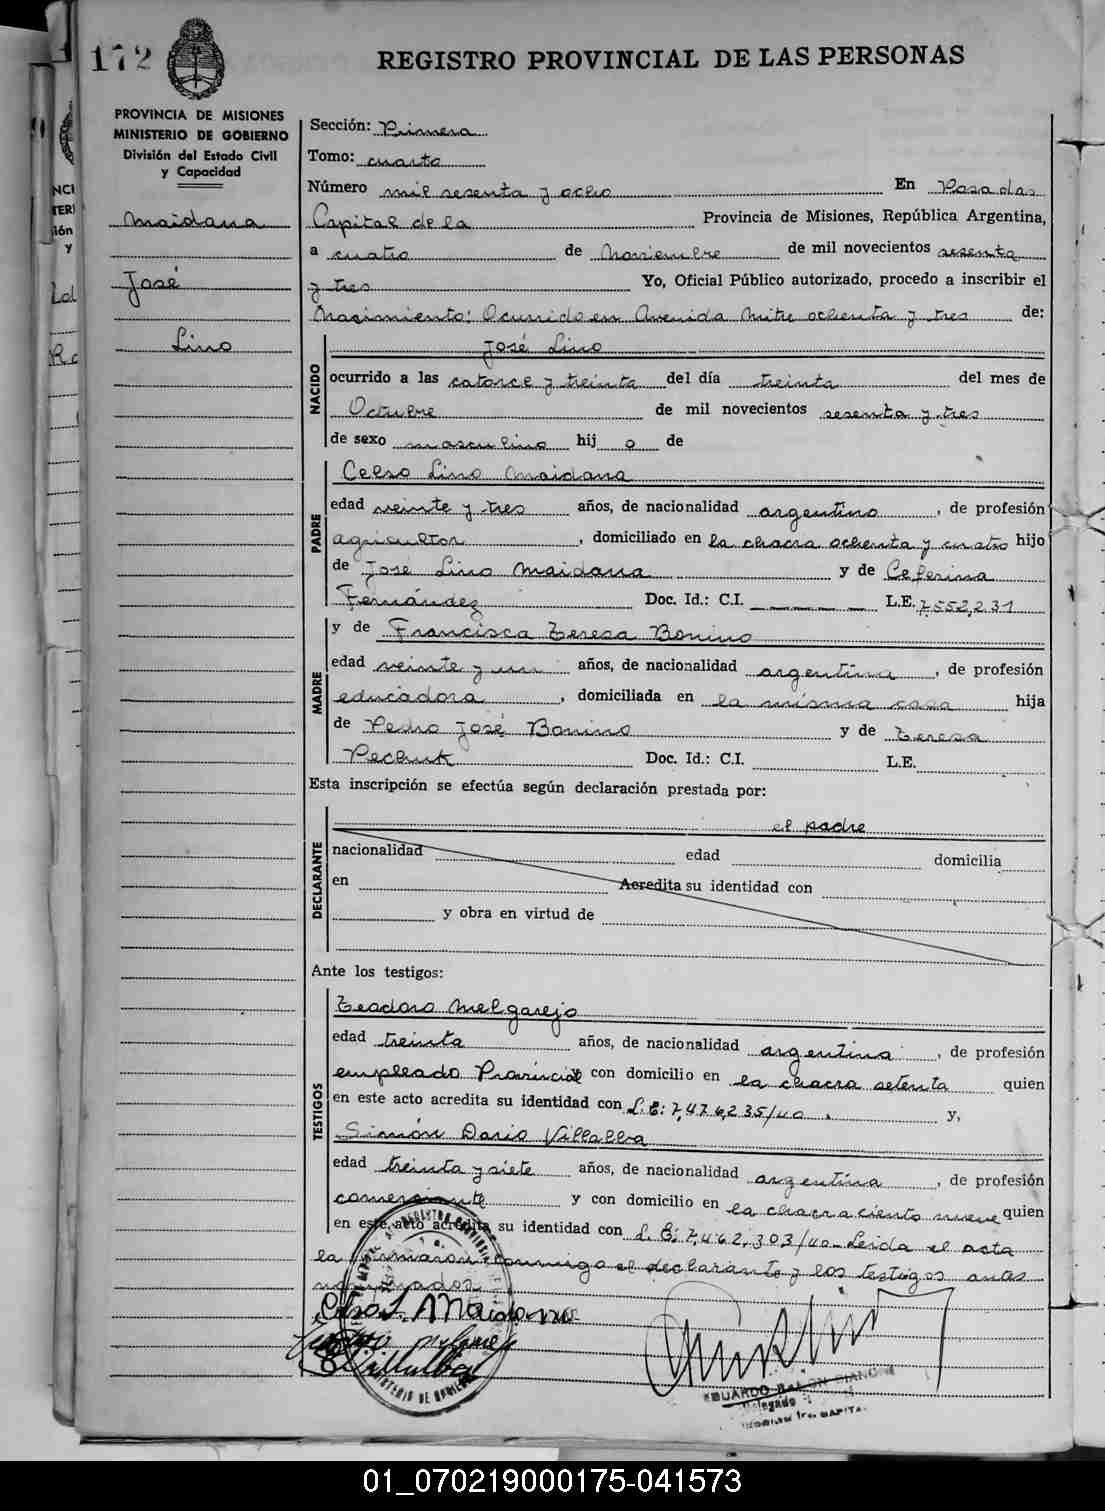 172
REGISTRO PROVINCIAL DE LAS PERSONAS
PROVINCIA DE MISIONES
MINISTERIO DE GOBIERNO
División del Estado Civil
y Capacidad
Maidana
José
Lino
Sección: Primera
Tomo: cuarto
Número mil sesenta y ocho En Posadas
Capital de la Provincia de Misiones, República Argentina,
a cuatro de Noviembre de mil novecientos sesenta
y tres Yo, Oficial Público autorizado, procedo a inscribir el
Nacimiento: Ocurrido en Avenida Mitre ochenta y tres de:
NACIDO
José Lino
ocurrido a las catorce y treinta del día treinta del mes de
Octubre de mil novecientos sesenta y tres
de sexo masculino hij o de
PADRE
Celso Lino Maidana
edad veinte y tres años, de nacionalidad argentino, de profesión
agricultor, domiciliado en la chacra ochenta y cuatro hijo
de José Lino Maidana y de Ceferina
Fernández Doc. Id.: C.I. L.E. 7.552,231
MADRE
y de Francisca Teresa Bonino
edad veinte y un años, de nacionalidad argentina, de profesión
educadora, domiciliada en la misma casa hija
de Pedro José Bonino y de Teresa
Pechuk Doc. Id.: C.I. L.E.
Esta inscripción se efectúa según declaración prestada por:
DECLARANTE
el padre
nacionalidad edad domicilia
en Acredita su identidad con
y obra en virtud de
Ante los testigos:
TESTIGOS
Teodoro Melgarejo
edad treinta años, de nacionalidad argentina, de profesión
empleado Provincial con domicilio en la chacra setenta quien
en este acto acredita su identidad con L.E: 7,476,235/40. y,
Simón Dario Villalba
edad treinta y siete años, de nacionalidad argentina, de profesión
comerciante y con domicilio en la chacra ciento nueve quien
en este acto acredita su identidad con L.E: 7,462,303/40-Leida el acta
la firmaron conmigo el declarante y los testigos antes
nominados.
Celso L. Maidana
Villalba
EDUARDO RAMON
Delegado
01_070219000175-041573